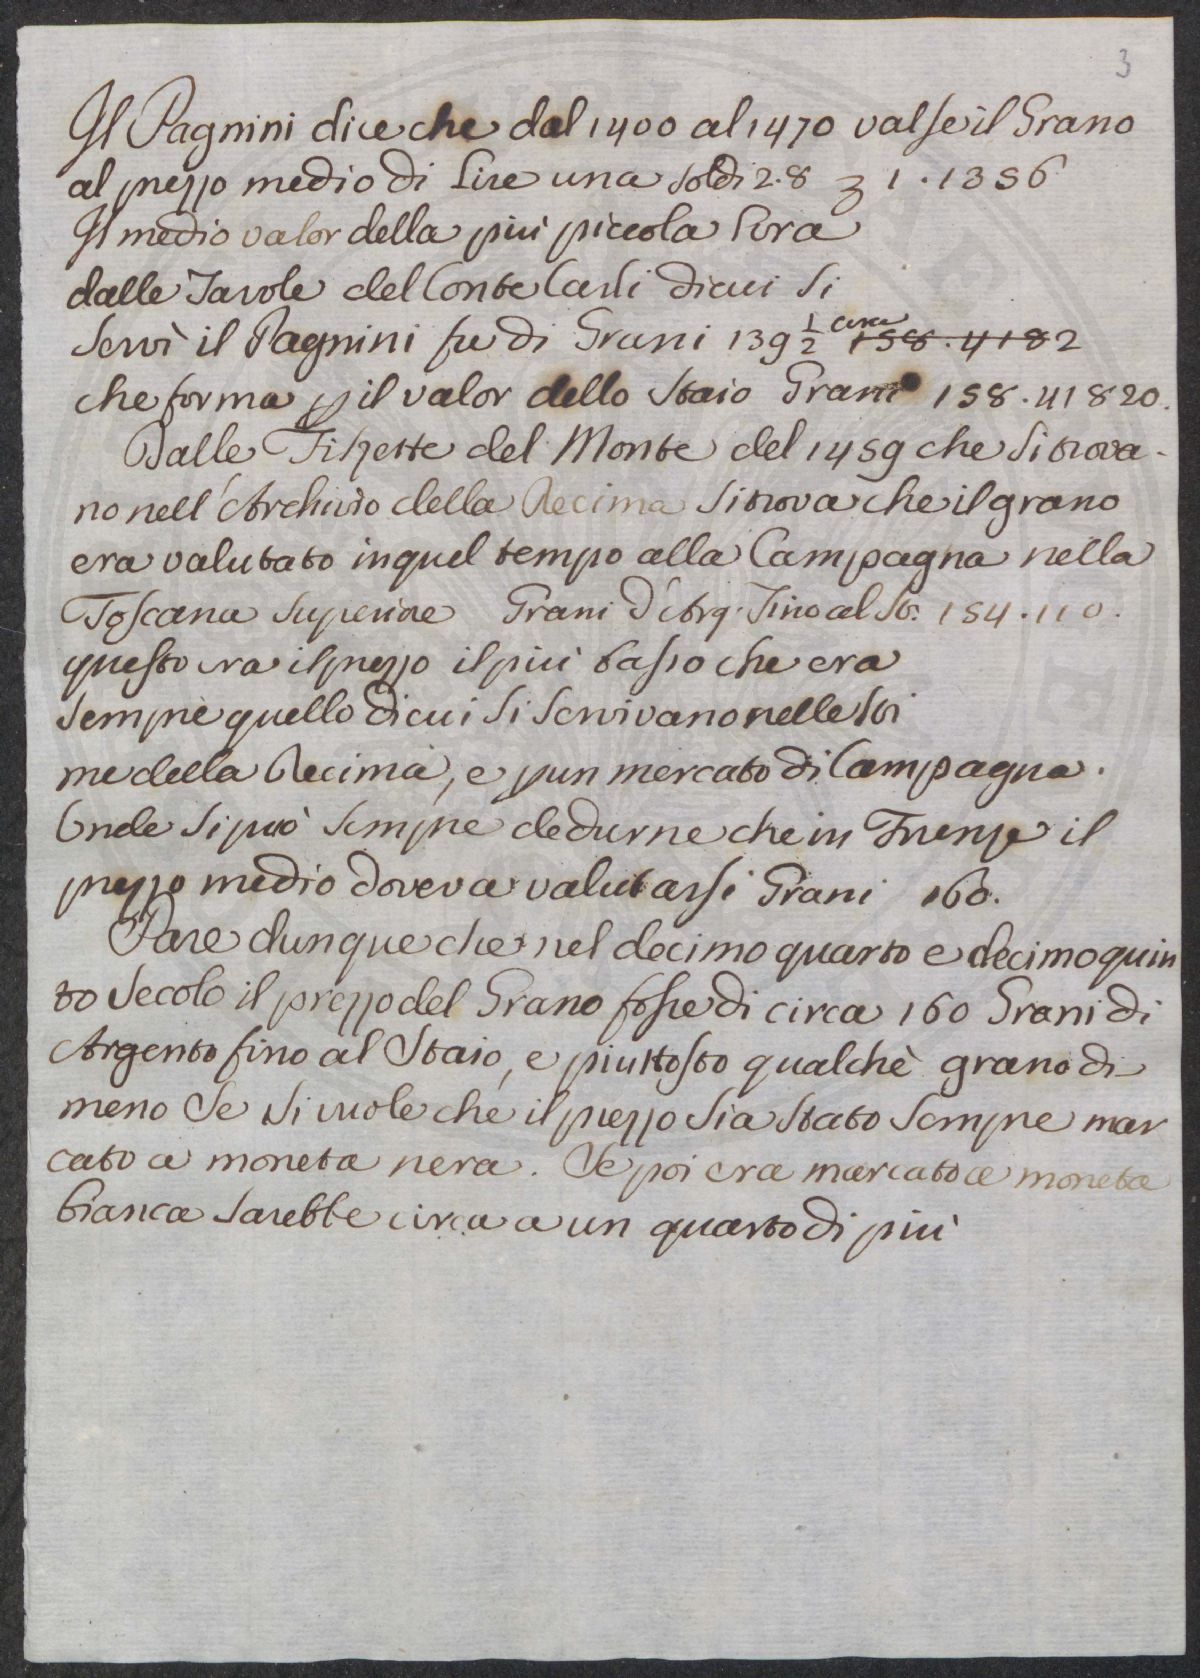 3
Il Pagnini dice che dal 1400 al 1470 valse il Grano
al prezzo medio di Lire una soldi 2.8 3 1.1356
Il medio valor della più piccola Lira
dalle Tavole del Conte Carli di cui si
servì il Pagnini fu di Grani 139 1/2 circa 158.4182
che forma p il valor dello Staio Grani 158.41820.
Dalle Filzette del Monte del 1459 che si trova-
no nell'Archivio della Decima si trova che il grano
era valutato in quel tempo alla Campagna nella
Toscana Superiore Grani d'Arg. Fino al St. 154.110.
questo era il prezzo il più basso che era
sempre quello di cui si servivano nelle sti
me della Decima, e p un mercato di Campagna.
Onde si può sempre dedurne che in Firenze il
prezzo medio doveva valutarsi Grani 160.
Pare dunque che nel decimo quarto e decimo quin
to secolo il prezzo del Grano fosse di circa 160 Grani di
Argento fino al Staio, e piuttosto qualchè grano di
meno Se si vuole che il prezzo sia stato sempre mar
cato a moneta nera. Se poi era marcato a moneta
bianca sarebbe circa a un quarto di più